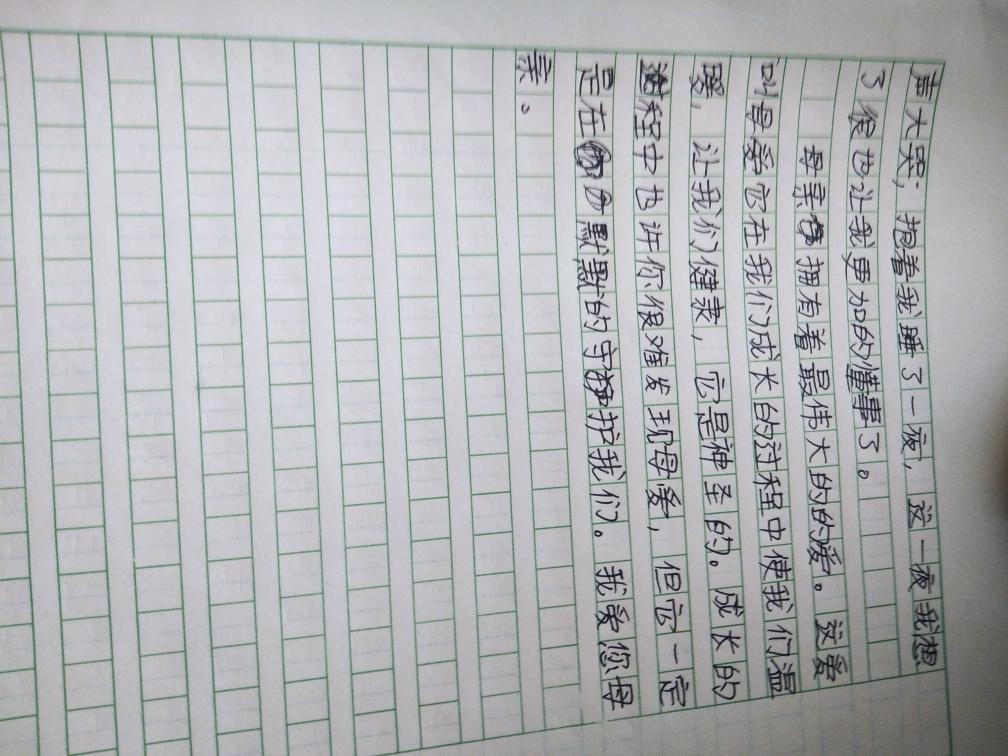 声大哭，抱着我睡了一夜，这一夜我想
了很也让我更加的懂事了。
母亲拥有着最伟大的的爱。这爱
叫母爱它在我们成长的过程中使我们温
暖，让我们健康，它是神圣的。成长的
过程中也许你很难发现母爱，但它一定
是在默默的守护我们。我爱您母
亲。